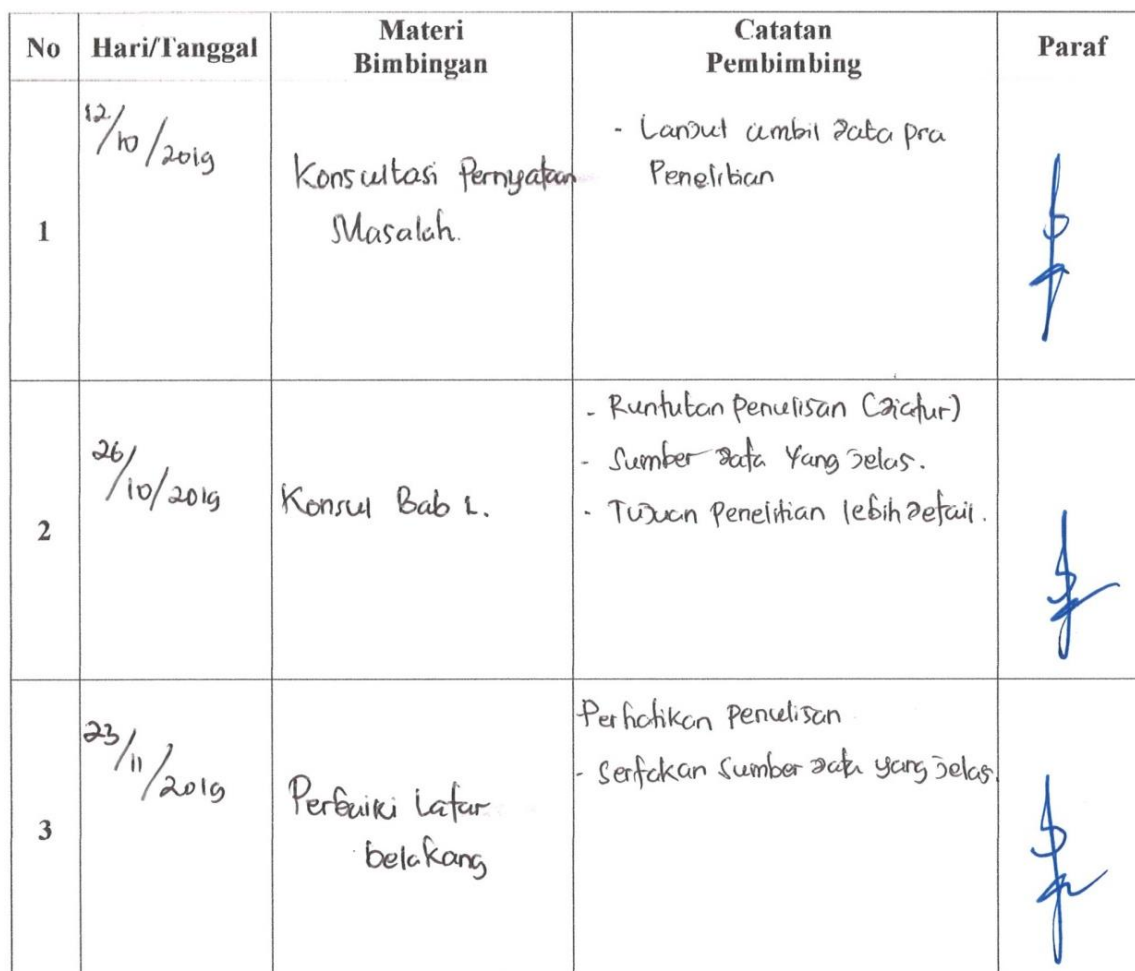 No Hari/Tanggal Materi Bimbingan Catatan Pembimbing Paraf
1
12/10/2019
Konsultasi Pernyataan
Masalah.
- Lanjut ambil data pra
Penelitian
2
26/10/2019
Konsul Bab 1.
- Runtutan penulisan (diatur)
- Sumber data yang jelas.
- Tujuan Penelitian lebih detail.
3
23/11/2019
Perbaiki Latar
belakang
Perhatikan penulisan
- Sertakan sumber data yang jelas.